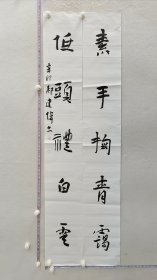 素手掬青靄
低頭禮白雲